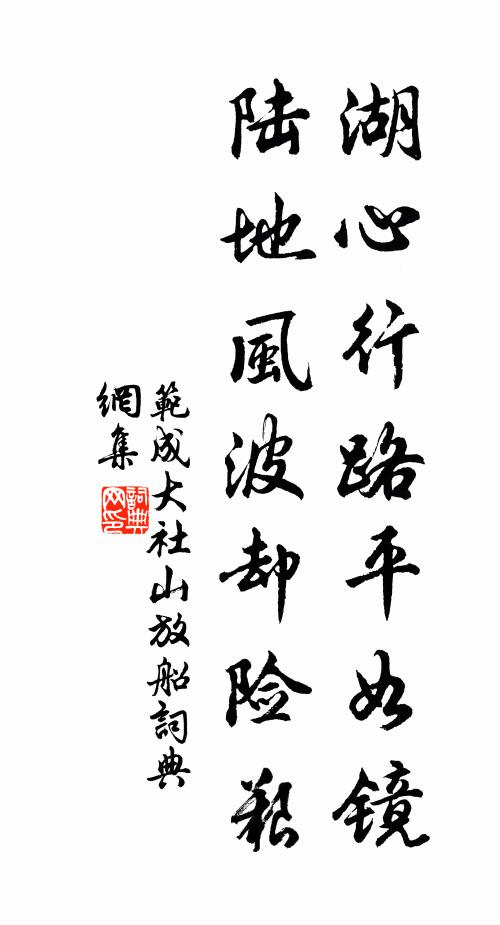 湖心行路平如镜
陆地風波却险艱
範成大社山放船詞典
網集
詞典
网印